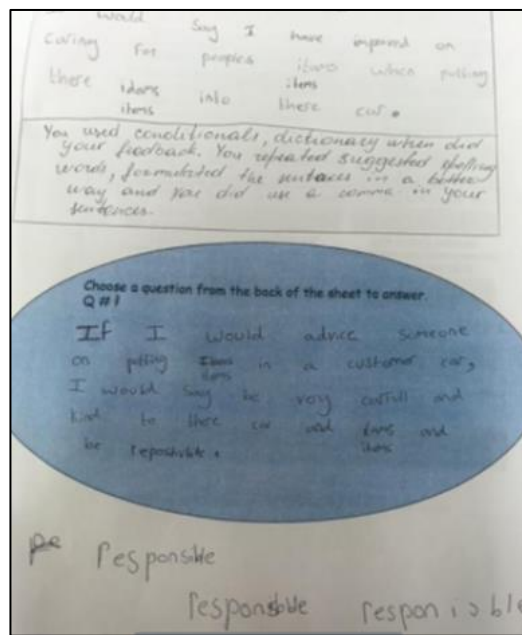 would say I have improved on
caring for peoples items when putting
there idams items
items into there car.
You used conditionals, dictionary when did
your feedback. You repeated suggested spelling
words, formulated the sentences in a better
way and you did use a comma in your
sentences.
Choose a question from the back of the sheet to answer.
Q # 1
If I would advice someone
on putting in a customer car,
items
I would say be very carfull and
kind to there car and and
be items
responsible
responsible responsible